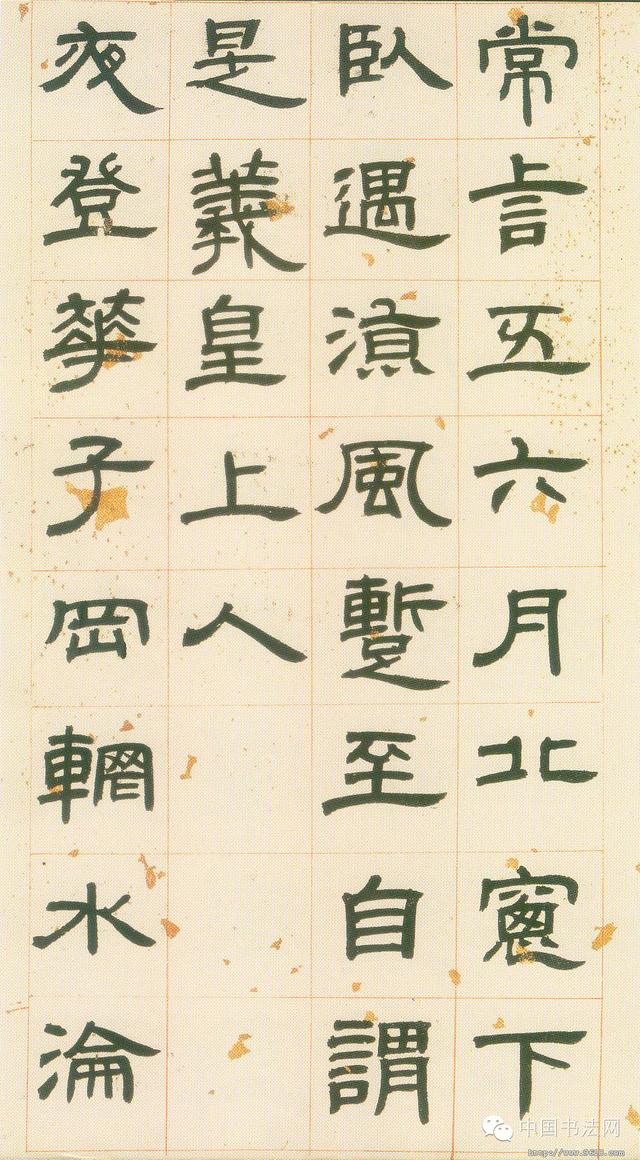 常言五六月北窻下
臥遇涼風蹔至自謂
是羲皇上人
夜登華子岡輞水淪
中国书法网
http://www.9610.com